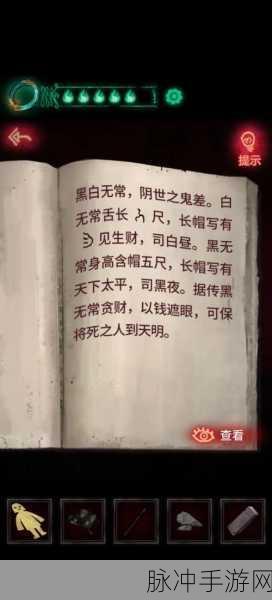 提示
黑白无常，阴世之鬼差。白
无常舌长 尺，长帽写有
见生财，司白昼。黑无
常身高含帽五尺，长帽写有
天下太平，司黑夜。据传黑
无常贪财，以钱遮眼，可保
将死之人到天明。
查看
脉冲手游网